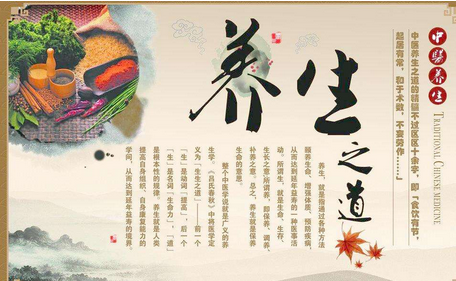 中醫养生
TRADITIONAL CHINESE MEDICINE
中医养生之道的精髓不过区区十余字，即「食饮有节，
起居有常，和于术数，不妄劳作……」
养生之道
养生，就是指通过各种方法
颐养生命、增强体质、预防疾病，
从而达到延年益寿的一种医事活
动。所谓生，就是生命、生存、
生长之意;所谓养，即保养、调养、
补养之意。总之，养生就是保养
生命的意思。
整个中医学说就是广义的养
生学，《吕氏春秋》中将医学定
义为「生生之道」——前一个
「生」是动词「提高」，后一个
「生」是名词「生命力」，「道」
是根本性的规律。养生就是人类
提高自身组织、自身康复能力的
学问，从而达到延年益寿的境界。